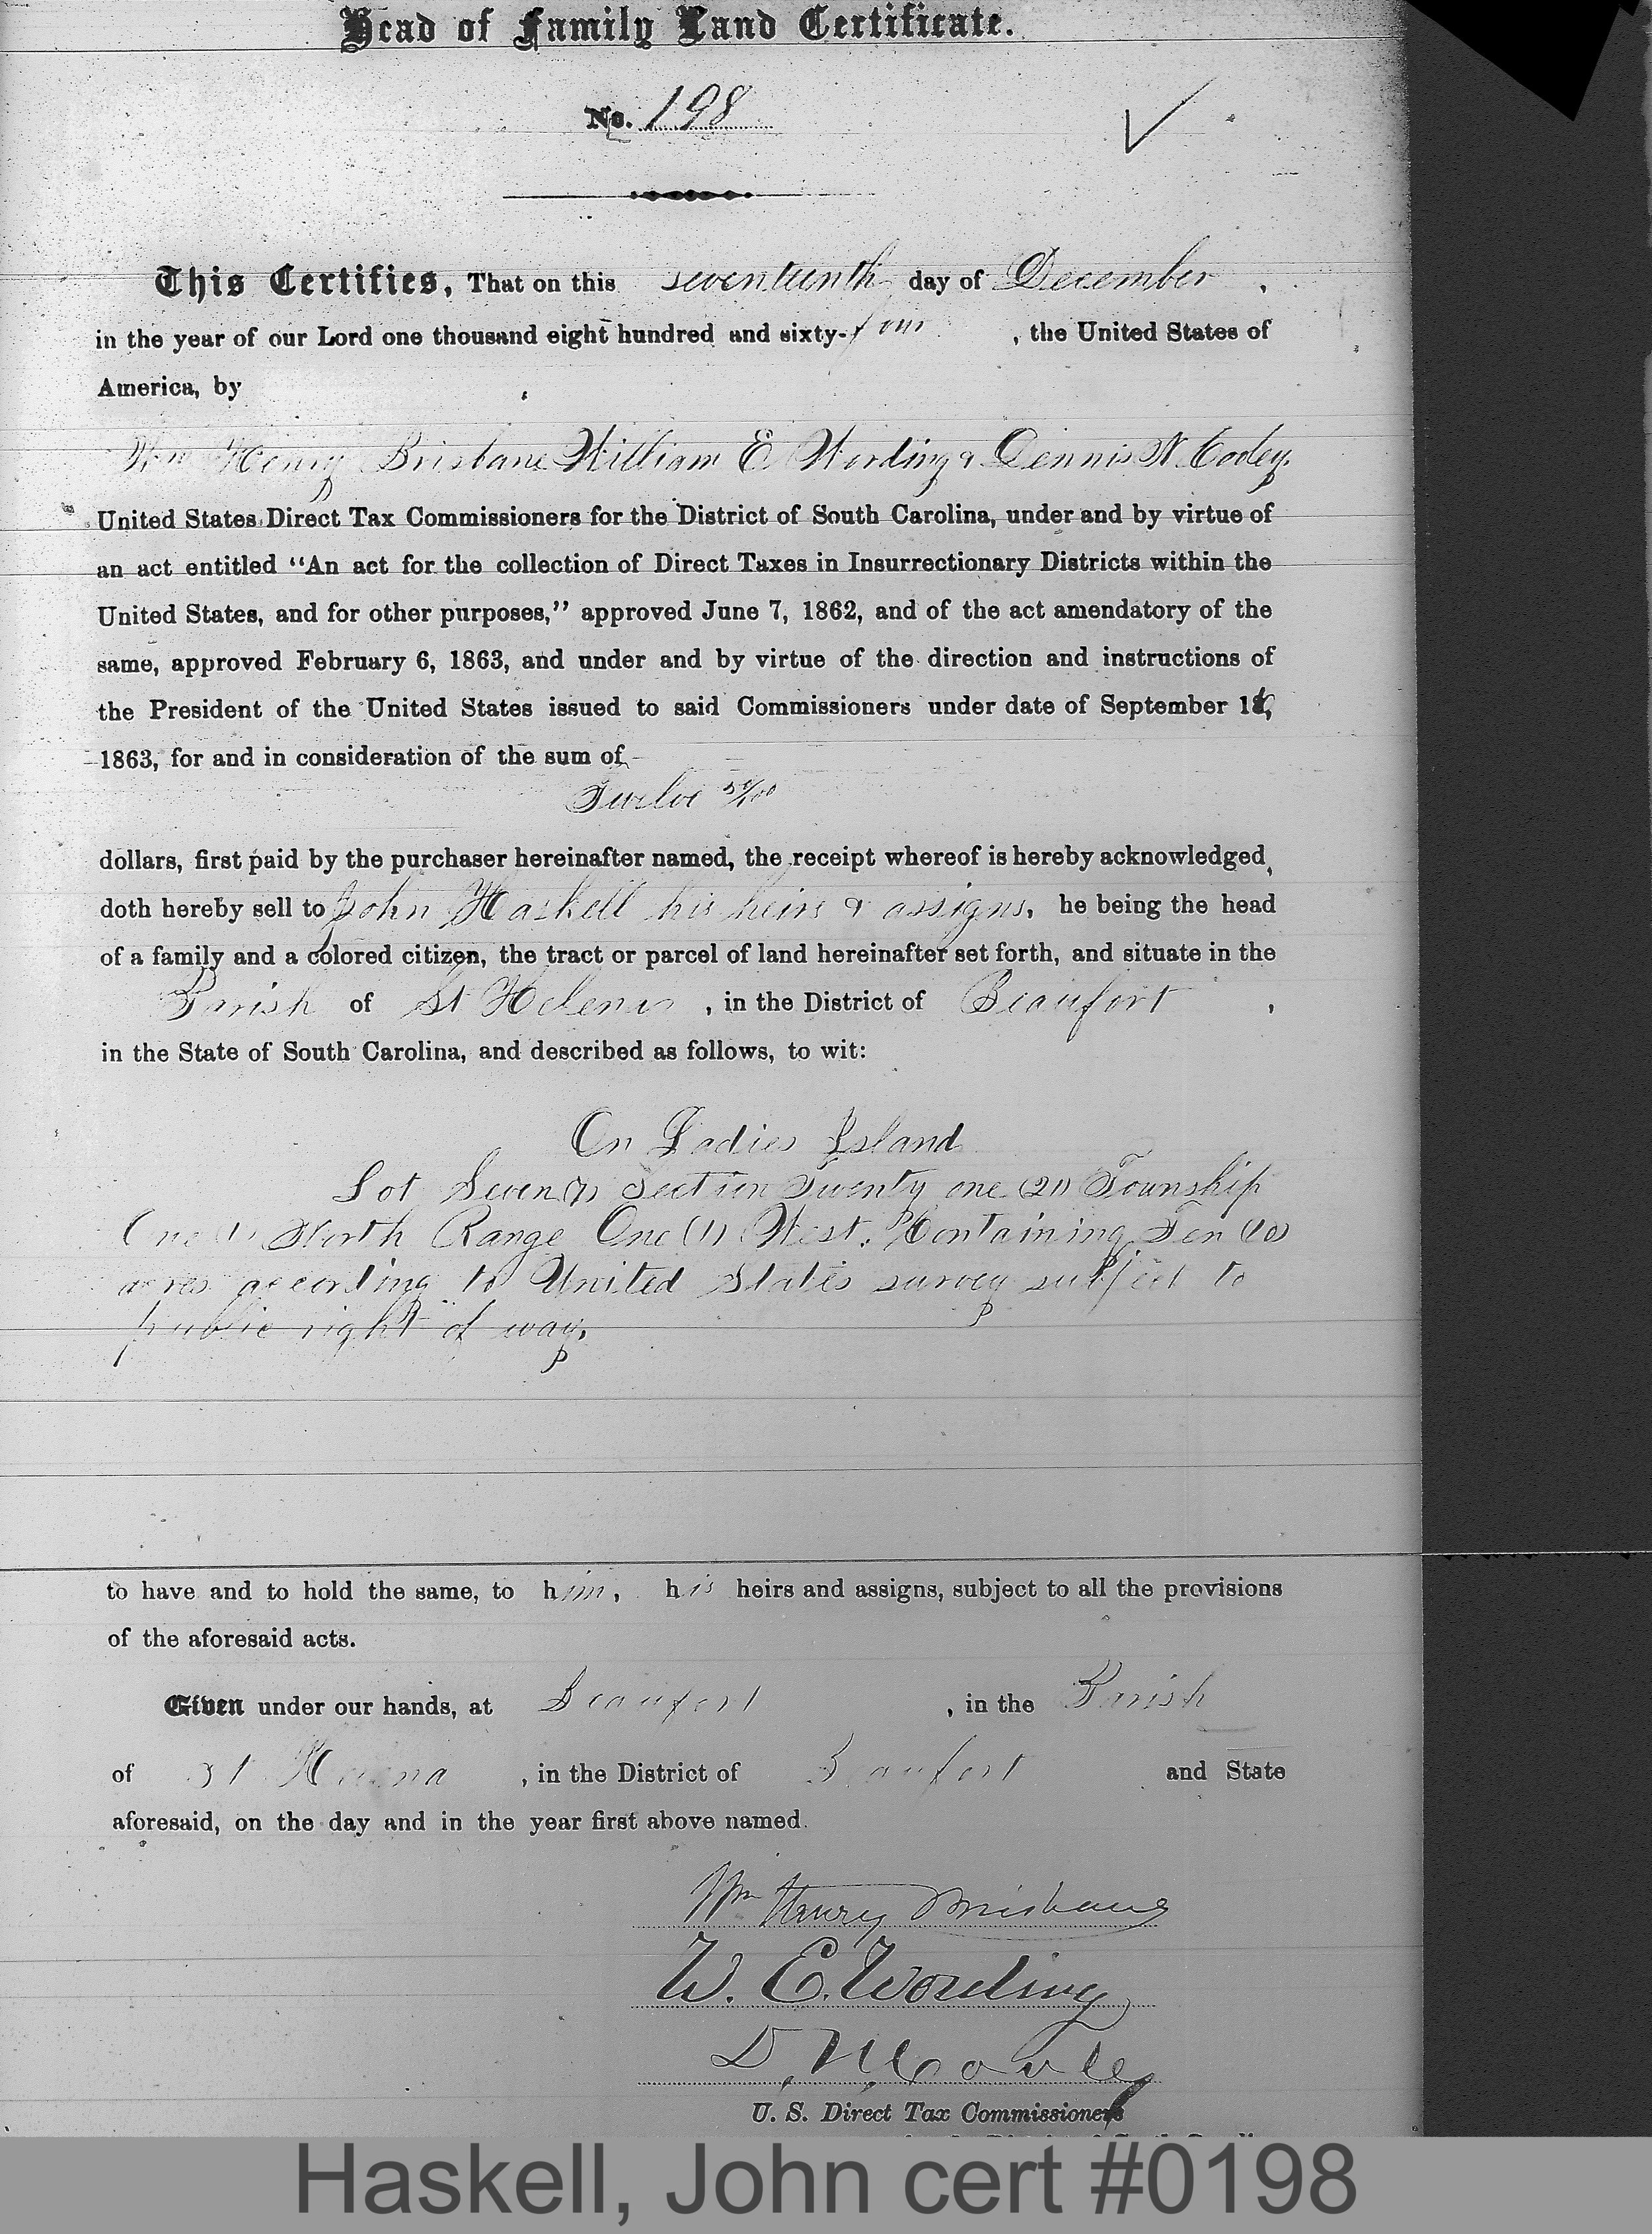 Head of Family Land Certificate.
No. 198
This Certifies, That on this seventeenth day of December,
in the year of our Lord one thousand eight hundred and sixty-four, the United States of
America, by
Wm Henry Brisbane William E Wording & Dennis N. Cooley.
United States Direct Tax Commissioners for the District of South Carolina, under and by virtue of
an act entitled "An act for the collection of Direct Taxes in Insurrectionary Districts within the
United States, and for other purposes," approved June 7, 1862, and of the act amendatory of the
same, approved February 6, 1863, and under and by virtue of the direction and instructions of
the President of the United States issued to said Commissioners under date of September 16,
1863, for and in consideration of the sum of
Twelve 50/100
dollars, first paid by the purchaser hereinafter named, the receipt whereof is hereby acknowledged,
doth hereby sell to John Haskell his heirs & assigns, he being the head
of a family and a colored citizen, the tract or parcel of land hereinafter set forth, and situate in the
Parish of St Helena, in the District of Beaufort,
in the State of South Carolina, and described as follows, to wit:
On Ladies Island
Lot Seven (7) Section Twenty one (21) Township
One (1) North Range One (1) West. Containing Ten (10)
acres according to United States survey subject to
public right of way.
to have and to hold the same, to him, his heirs and assigns, subject to all the provisions
of the aforesaid acts.
Given under our hands, at Beaufort, in the Parish
of St Helena, in the District of Beaufort and State
aforesaid, on the day and in the year first above named.
Wm Henry Brisbane
W. E. Wording
D. N. Cooley
U. S. Direct Tax Commissioners
Haskell, John cert #0198